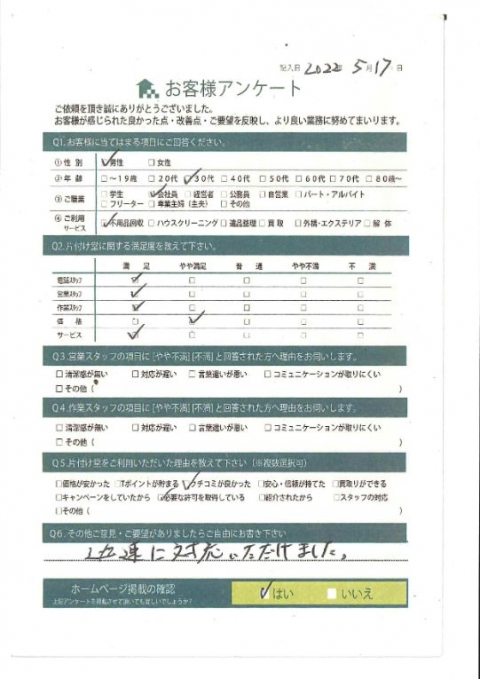 記入日 2022年 5月17日
お客様アンケート
ご依頼を頂き誠にありがとうございました。
お客様が感じられた良かった点・改善点・ご要望を反映し、より良い業務に努めてまいります。
Q1.お客様に当てはまる項目にご回答ください。
①性別 ☑男性 □女性
②年齢 □～19歳 □20代 ☑30代 □40代 □50代 □60代 □70代 □80歳～
③ご職業 □学生 ☑会社員 □経営者 □公務員 □自営業 □パート・アルバイト
□フリーター □専業主婦（主夫） □その他
④ご利用サービス ☑不用品回収 □ハウスクリーニング □遺品整理 □買取 □外構・エクステリア □解体
Q2.片付け堂に関する満足度を教えて下さい。
満足 やや満足 普通 やや不満 不満
電話スタッフ ☑ □ □ □ □
営業スタッフ ☑ □ □ □ □
作業スタッフ ☑ □ □ □ □
価格 □ ☑ □ □ □
サービス ☑ □ □ □ □
Q3.営業スタッフの項目に[やや不満][不満]と回答された方へ理由をお伺いします。
□清潔感が無い □対応が遅い □言葉遣いが悪い □コミュニケーションが取りにくい
□その他（ ）
Q4.作業スタッフの項目に[やや不満][不満]と回答された方へ理由をお伺いします。
□清潔感が無い □対応が遅い □言葉遣いが悪い □コミュニケーションが取りにくい
□その他（ ）
Q5.片付け堂をご利用いただいた理由を教えて下さい（※複数選択可）
□価格が安かった □Tポイントが貯まる ☑クチコミが良かった □安心・信頼が持てた □買取りができる
□キャンペーンをしていたから ☑必要な許可を取得している □紹介されたから □スタッフの対応
□その他（ ）
Q6.その他ご意見・ご要望がありましたらご自由にお書き下さい
迅速に対応いただけました。
ホームページ掲載の確認 ☑はい □いいえ
上記アンケートを掲載させて頂いても宜しいでしょうか？